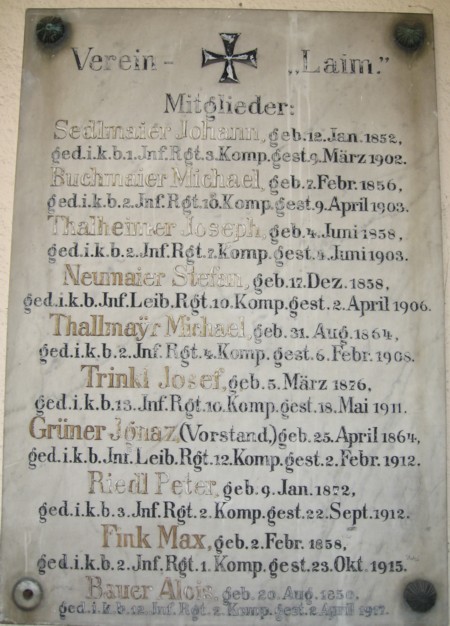 Verein - „Laim."
Mitglieder:
Sedlmaier Johann, geb. 12. Jan. 1852,
ged. i. k. b. 1. Jnf. Rgt. 3. Komp. gest. 9. März 1902.
Buchmaier Michael, geb. 7. Febr. 1856,
ged. i. k. b. 2. Jnf. Rgt. 10. Komp. gest. 9. April 1903.
Thalheimer Joseph, geb. 4. Juni 1858,
ged. i. k. b. 2. Jnf. Rgt. 7. Komp. gest. 4. Juni 1903.
Neumaier Stefan, geb. 17. Dez. 1858,
ged. i. k. b. Jnf. Leib. Rgt. 10. Komp. gest. 2. April 1906.
Thallmaÿr Michael, geb. 31. Aug. 1864,
ged. i. k. b. 2. Jnf. Rgt. 4. Komp. gest. 6. Febr. 1908.
Trinkl Josef, geb. 5. März 1876,
ged. i. k. b. 13. Jnf. Rgt. 10. Komp. gest. 18. Mai 1911.
Grüner Jgnaz, (Vorstand,) geb. 25. April 1864,
ged. i. k. b. Jnf. Leib. Rgt. 12. Komp. gest. 2. Febr. 1912.
Riedl Peter, geb. 9. Jan. 1872,
ged. i. k. b. 3. Jnf. Rgt. 2. Komp. gest. 22. Sept. 1912.
Fink Max, geb. 2. Febr. 1858,
ged. i. k. b. 2. Jnf. Rgt. 1. Komp. gest. 23. Okt. 1915.
Bauer Alois, geb. 20. Aug. 1850,
ged. i. k. b. 12. Jnf. Rgt. 2. Komp. gest. 2. April 1917.